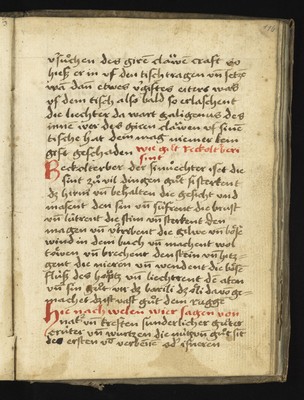 vsuchen des giren clawe craft so
hiesz er in vf den tisch tragen vn setze
wa dan etwes vgiftes eiters was
vf dem tisch also bald so erlaschent
die liechter da wart galigonus des
inne wer des giren clawen vf sine
tische hat dem mag niemer kein
gift geschaden wie gůt Reckolterberi
sint
Reckolterber der smücher iset die
sint zů vil dingen gůt si sterkent
dz hirni vn behaltē die gesicht vnd
machent den sin vn süfrent die brust
vn lütrent die stim vn sterkent den
magen vn vtribent die gilwe vn böse
wind in dem buch vn machent wol
töwen vn brechent den stein vn
gent die nieren vn wendent die böse
flüss des vn liechtrent dē atem
vn sin gůt vn dz öli davo ge
machet dz ist vast gůt dem rugge
Hie nach wellen wier sagen von
natur vn kreften sunderlicher gůter
krüter vn wurtzen die nutz vn gůt sit
des ersten vō verbene od isneren